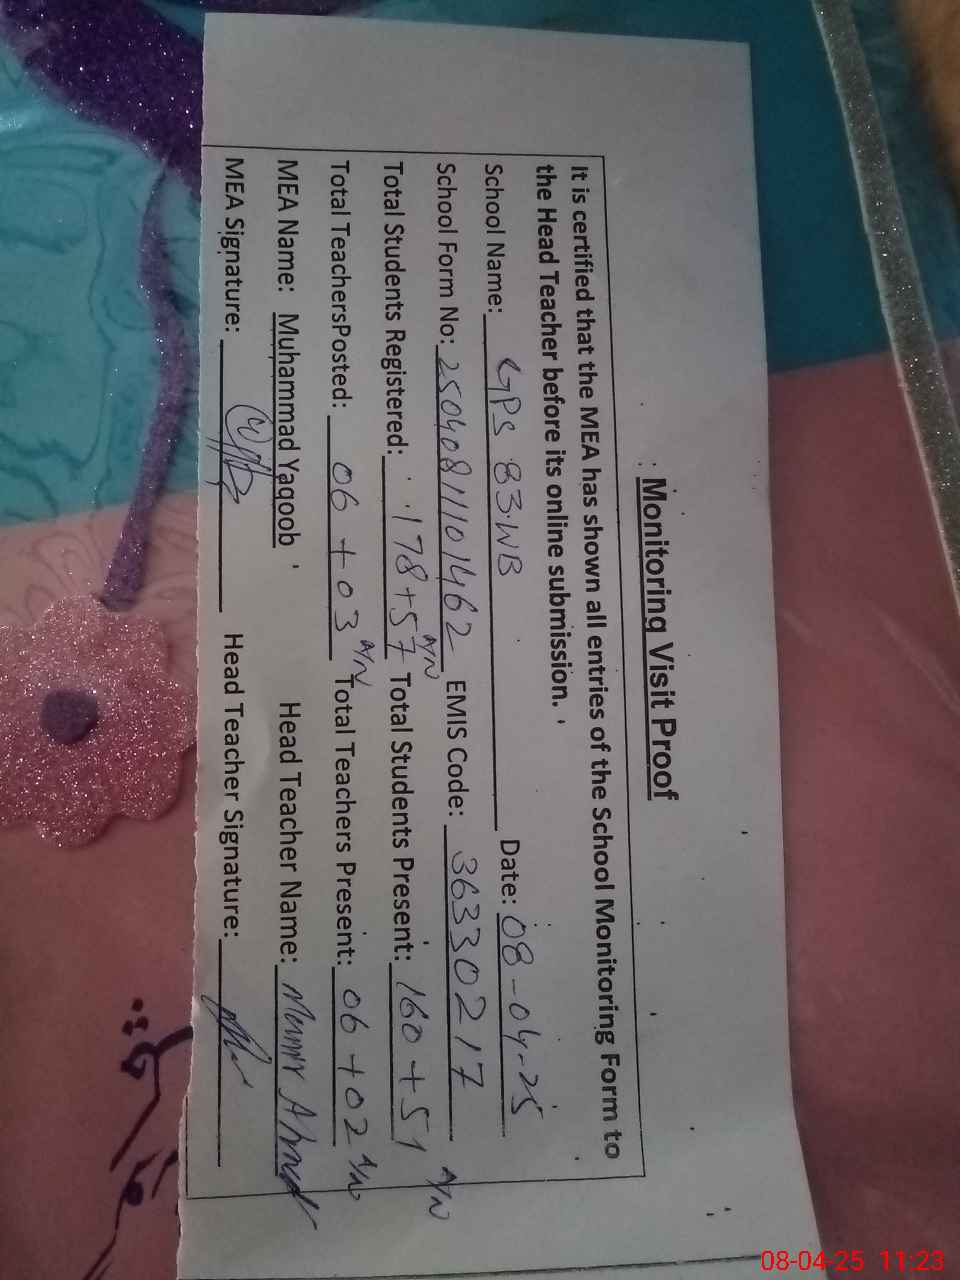 Monitoring Visit Proof
It is certified that the MEA has shown all entries of the School Monitoring Form to
the Head Teacher before its online submission.
School Name: GPS 83WB Date: 08-04-25
School Form No: 25040811101462 EMIS Code: 36330217
Total Students Registered: 178+57 A/N Total Students Present: 160+51 A/N
Total TeachersPosted: 06+03 A/N Total Teachers Present: 06+02 A/N
MEA Name: Muhammad Yaqoob Head Teacher Name: Munir Ahmed
MEA Signature: Head Teacher Signature:
08-04-25 11:23